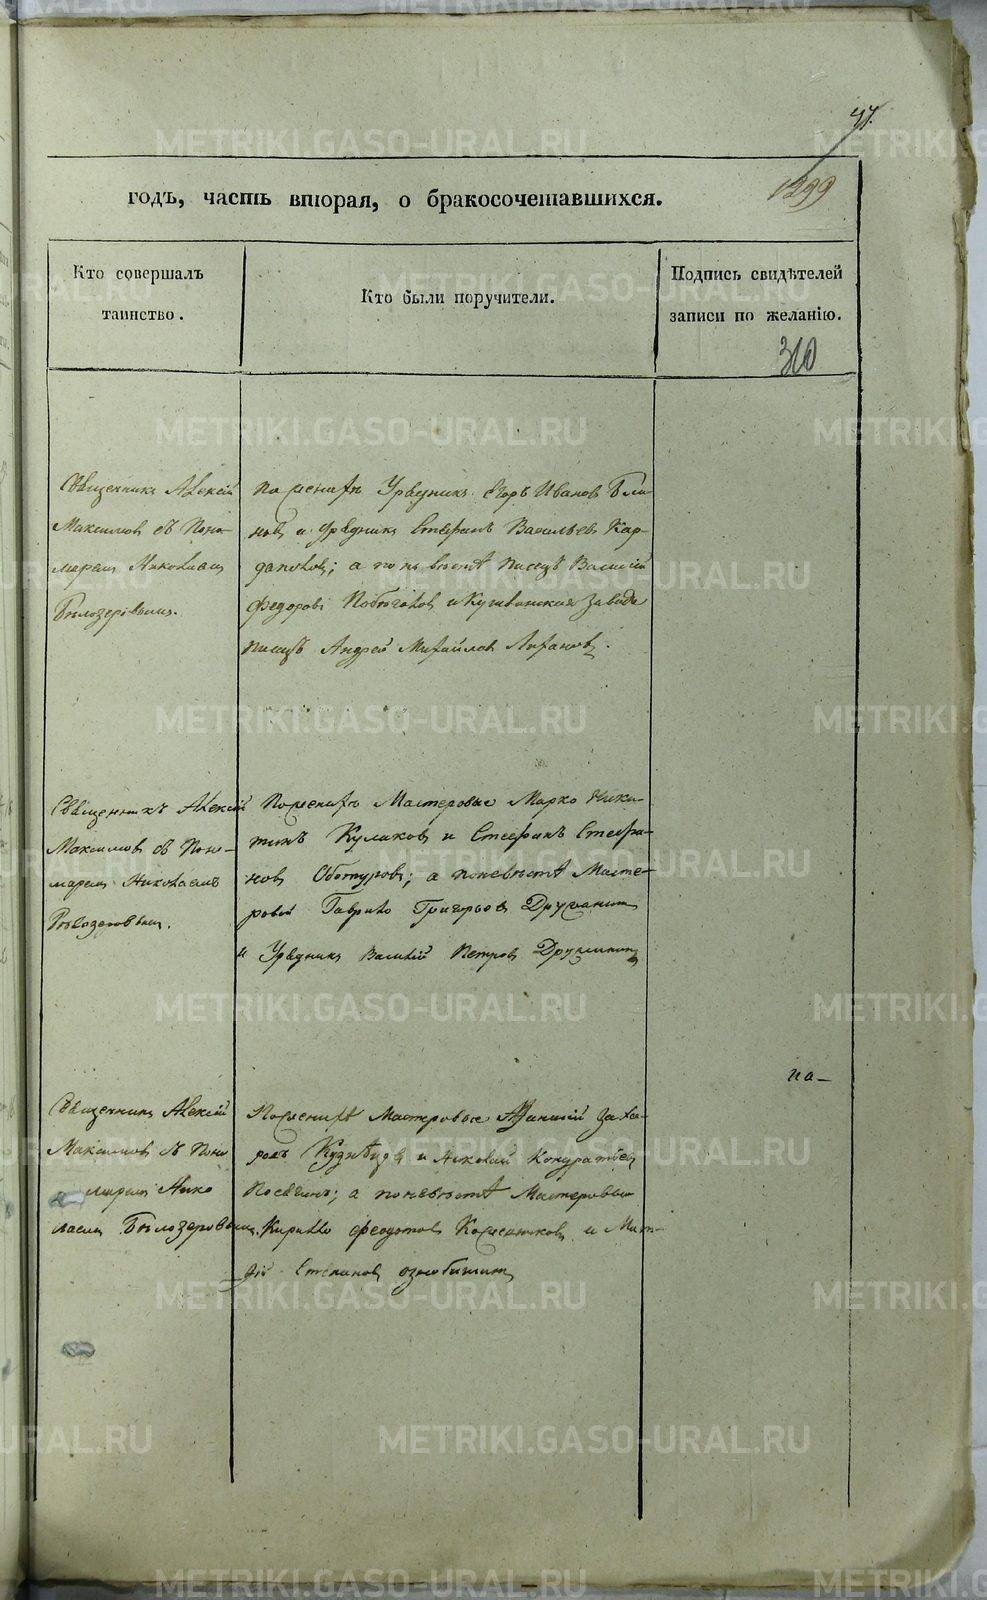 47.
1299
годъ, часть вторая, о бракосочетавшихся.
Кто совершалъ
таинство.
Кто были поручители.
Подпись свидѣтелей
записи по желанію.
310
Священникъ Алексѣй
Максимов съ Поно-
марем Николаем
Бѣлозеровымъ.
По женихѣ Урядникъ Егоръ Иванов Бли-
нов и Урядникъ Стефанъ Васильев Кар-
; а по невѣстѣ Писецъ Василій
Федоровъ и Кушвинскаго Завода
писецъ Андрей Михайлов
Священникъ Алексѣй
Максимов съ Поно-
марем Николаемъ
Бѣлозеровым.
По женихѣ Мастеровые Марко Ники-
тинъ Кулаков и Стефанъ Стефа-
нов Обатуров; а по невѣстѣ Масте-
ровой Гаврило Григорьев Дружинин
и Урядникъ Василій Петров Дружинин
на-
Священникъ Алексѣй
Максимов съ Поно
марем Нико
лаем Бѣлозеровым.
По женихѣ Мастеровые Афанасій Заха-
ровъ и Алексѣй Кондратьев
; а по невѣстѣ Мастеровые
Кирилло Феодотов и Мат-
фій Степанов Ознобишин
METRIKI.GASO-URAL.RU